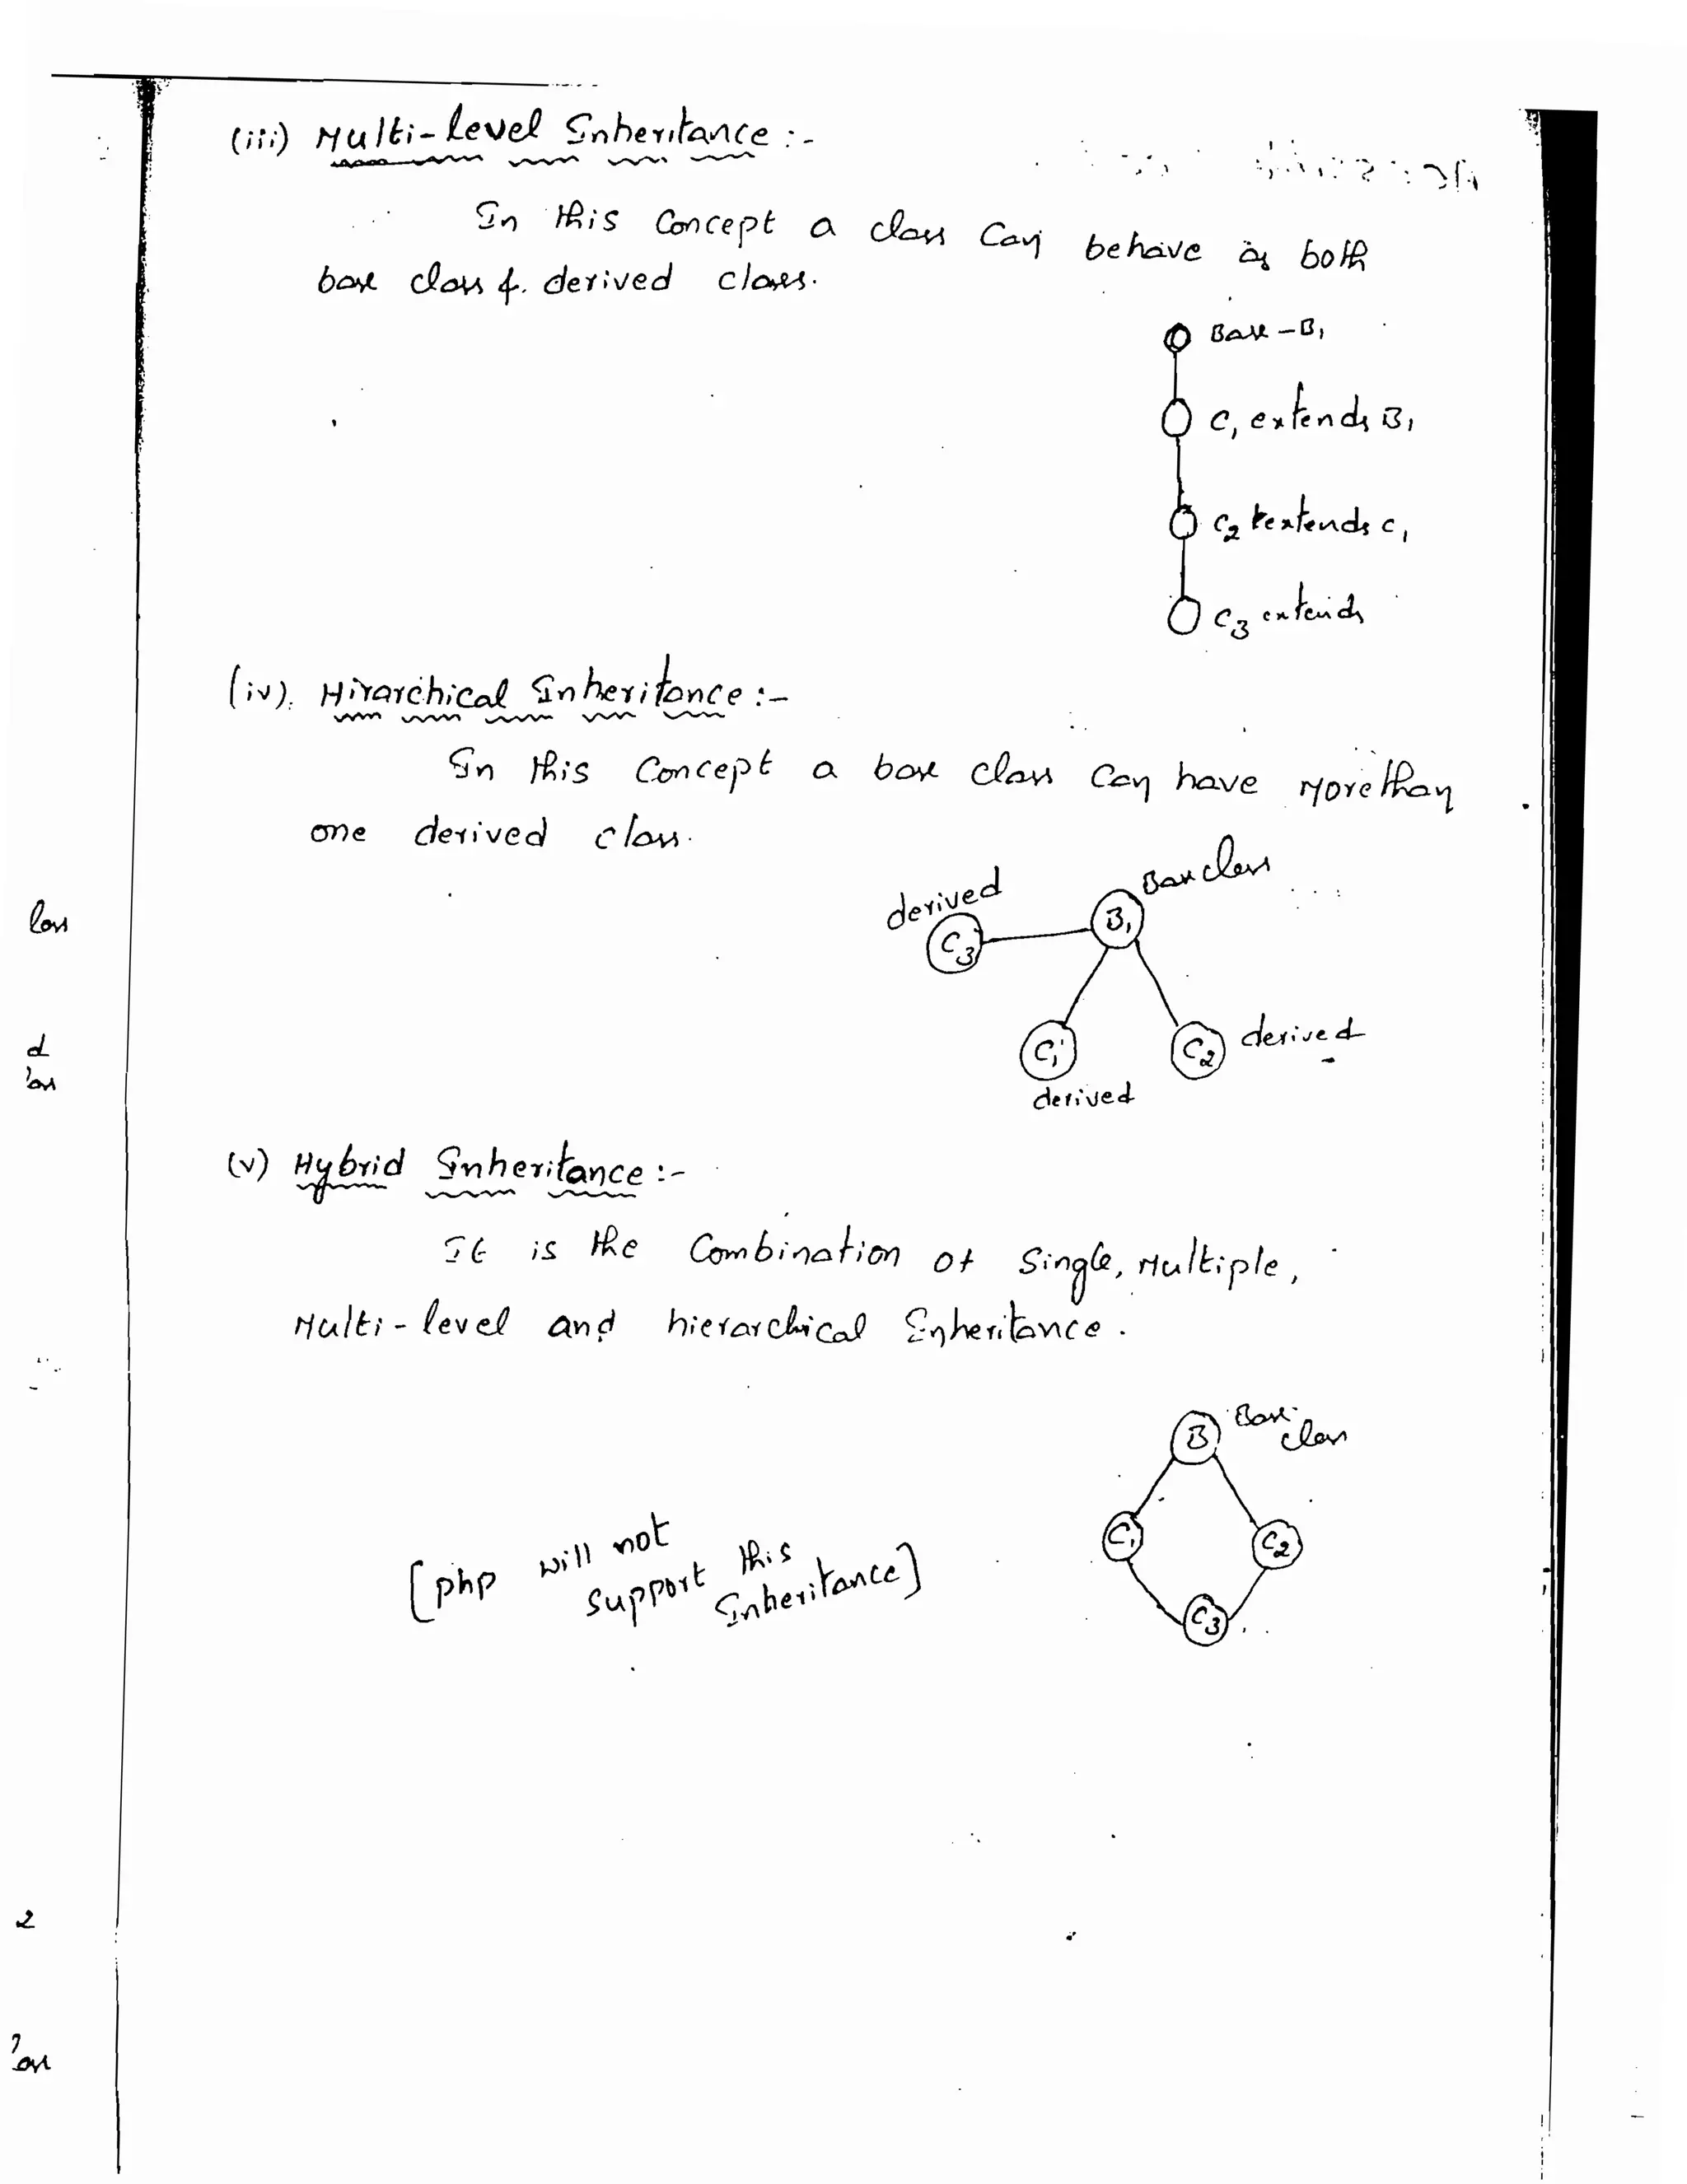 (iii) Multi-level Inheritance :-
In this Concept a class Can behave as both
base class & derived class.
Base - B1
C1 extends B1
C2 extends C1
C3 extends
(iv). Hirarchical Inheritance :-
In this Concept a base class Can have More than
one derived class.
derived
Base class
C3
B1
C1
C2
derived
derived
(v) Hybrid Inheritance :-
It is the Combination of Single, Multiple,
Multi-level and hierarchical Inheritance.
B
Base
class
C1
C2
C3
[php will not
support this
Inheritance]
d
2